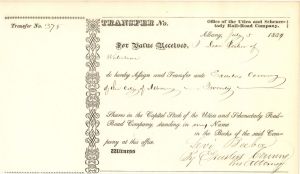 Transfer No. 375
TRANSFER No.
Office of the Utica and Schenectady Rail-Road Company,
Albany, July 5 1839
For Value Received, I
do hereby Assign and Transfer unto Erastus Corning
of the City of Albany Twenty
Shares in the Capital Stock of the Utica and Schenectady Rail-
Road Company, standing in my Name
in the Books of the said Com-
pany at this office.
Witness
By Erastus Corning
his Attorney